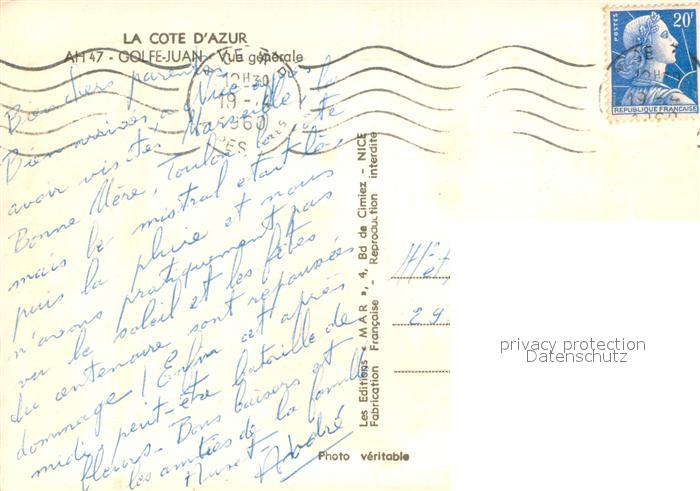 LA COTE D'AZUR
AH 47 - GOLFE-JUAN - Vue générale
Bien chers parents
Bien arrivés à Nice après
avoir visités Marseille, la
Bonne Mère, Toulon, la côte
mais le mistral était là
puis la pluie et nous
n'avons pratiquement pas
vu le soleil et les fêtes
du centenaire sont repoussées
dommage ! Enfin cet après
midi peut-être bataille de
fleurs - Bons baisers et
les amitiés de la famille
André
Photo véritable
Les Editions « MAR », 4, Bd de Cimiez - NICE
Fabrication Française - Reproduction interdite
POSTES
20F
REPUBLIQUE FRANÇAISE
12H30
19 - 4
1960
29
privacy protection
Datenschutz